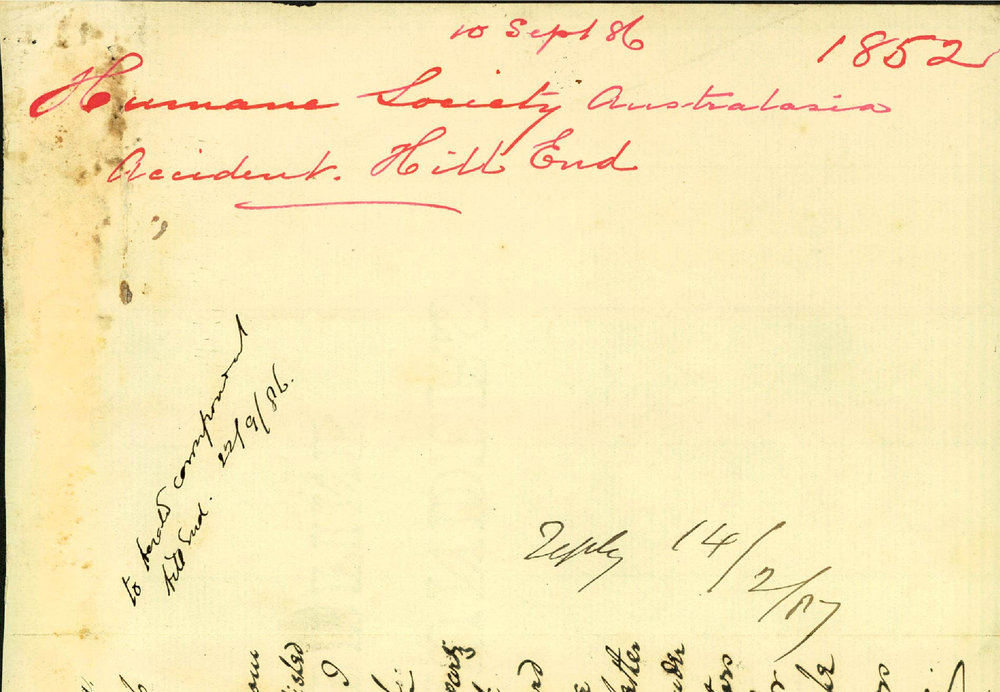 10 Sept 86
1852
Humane Society Australasia
Accident. Hill End
to Herald correspondent
Hill End. 22/9/86.
Reply 14/2/87